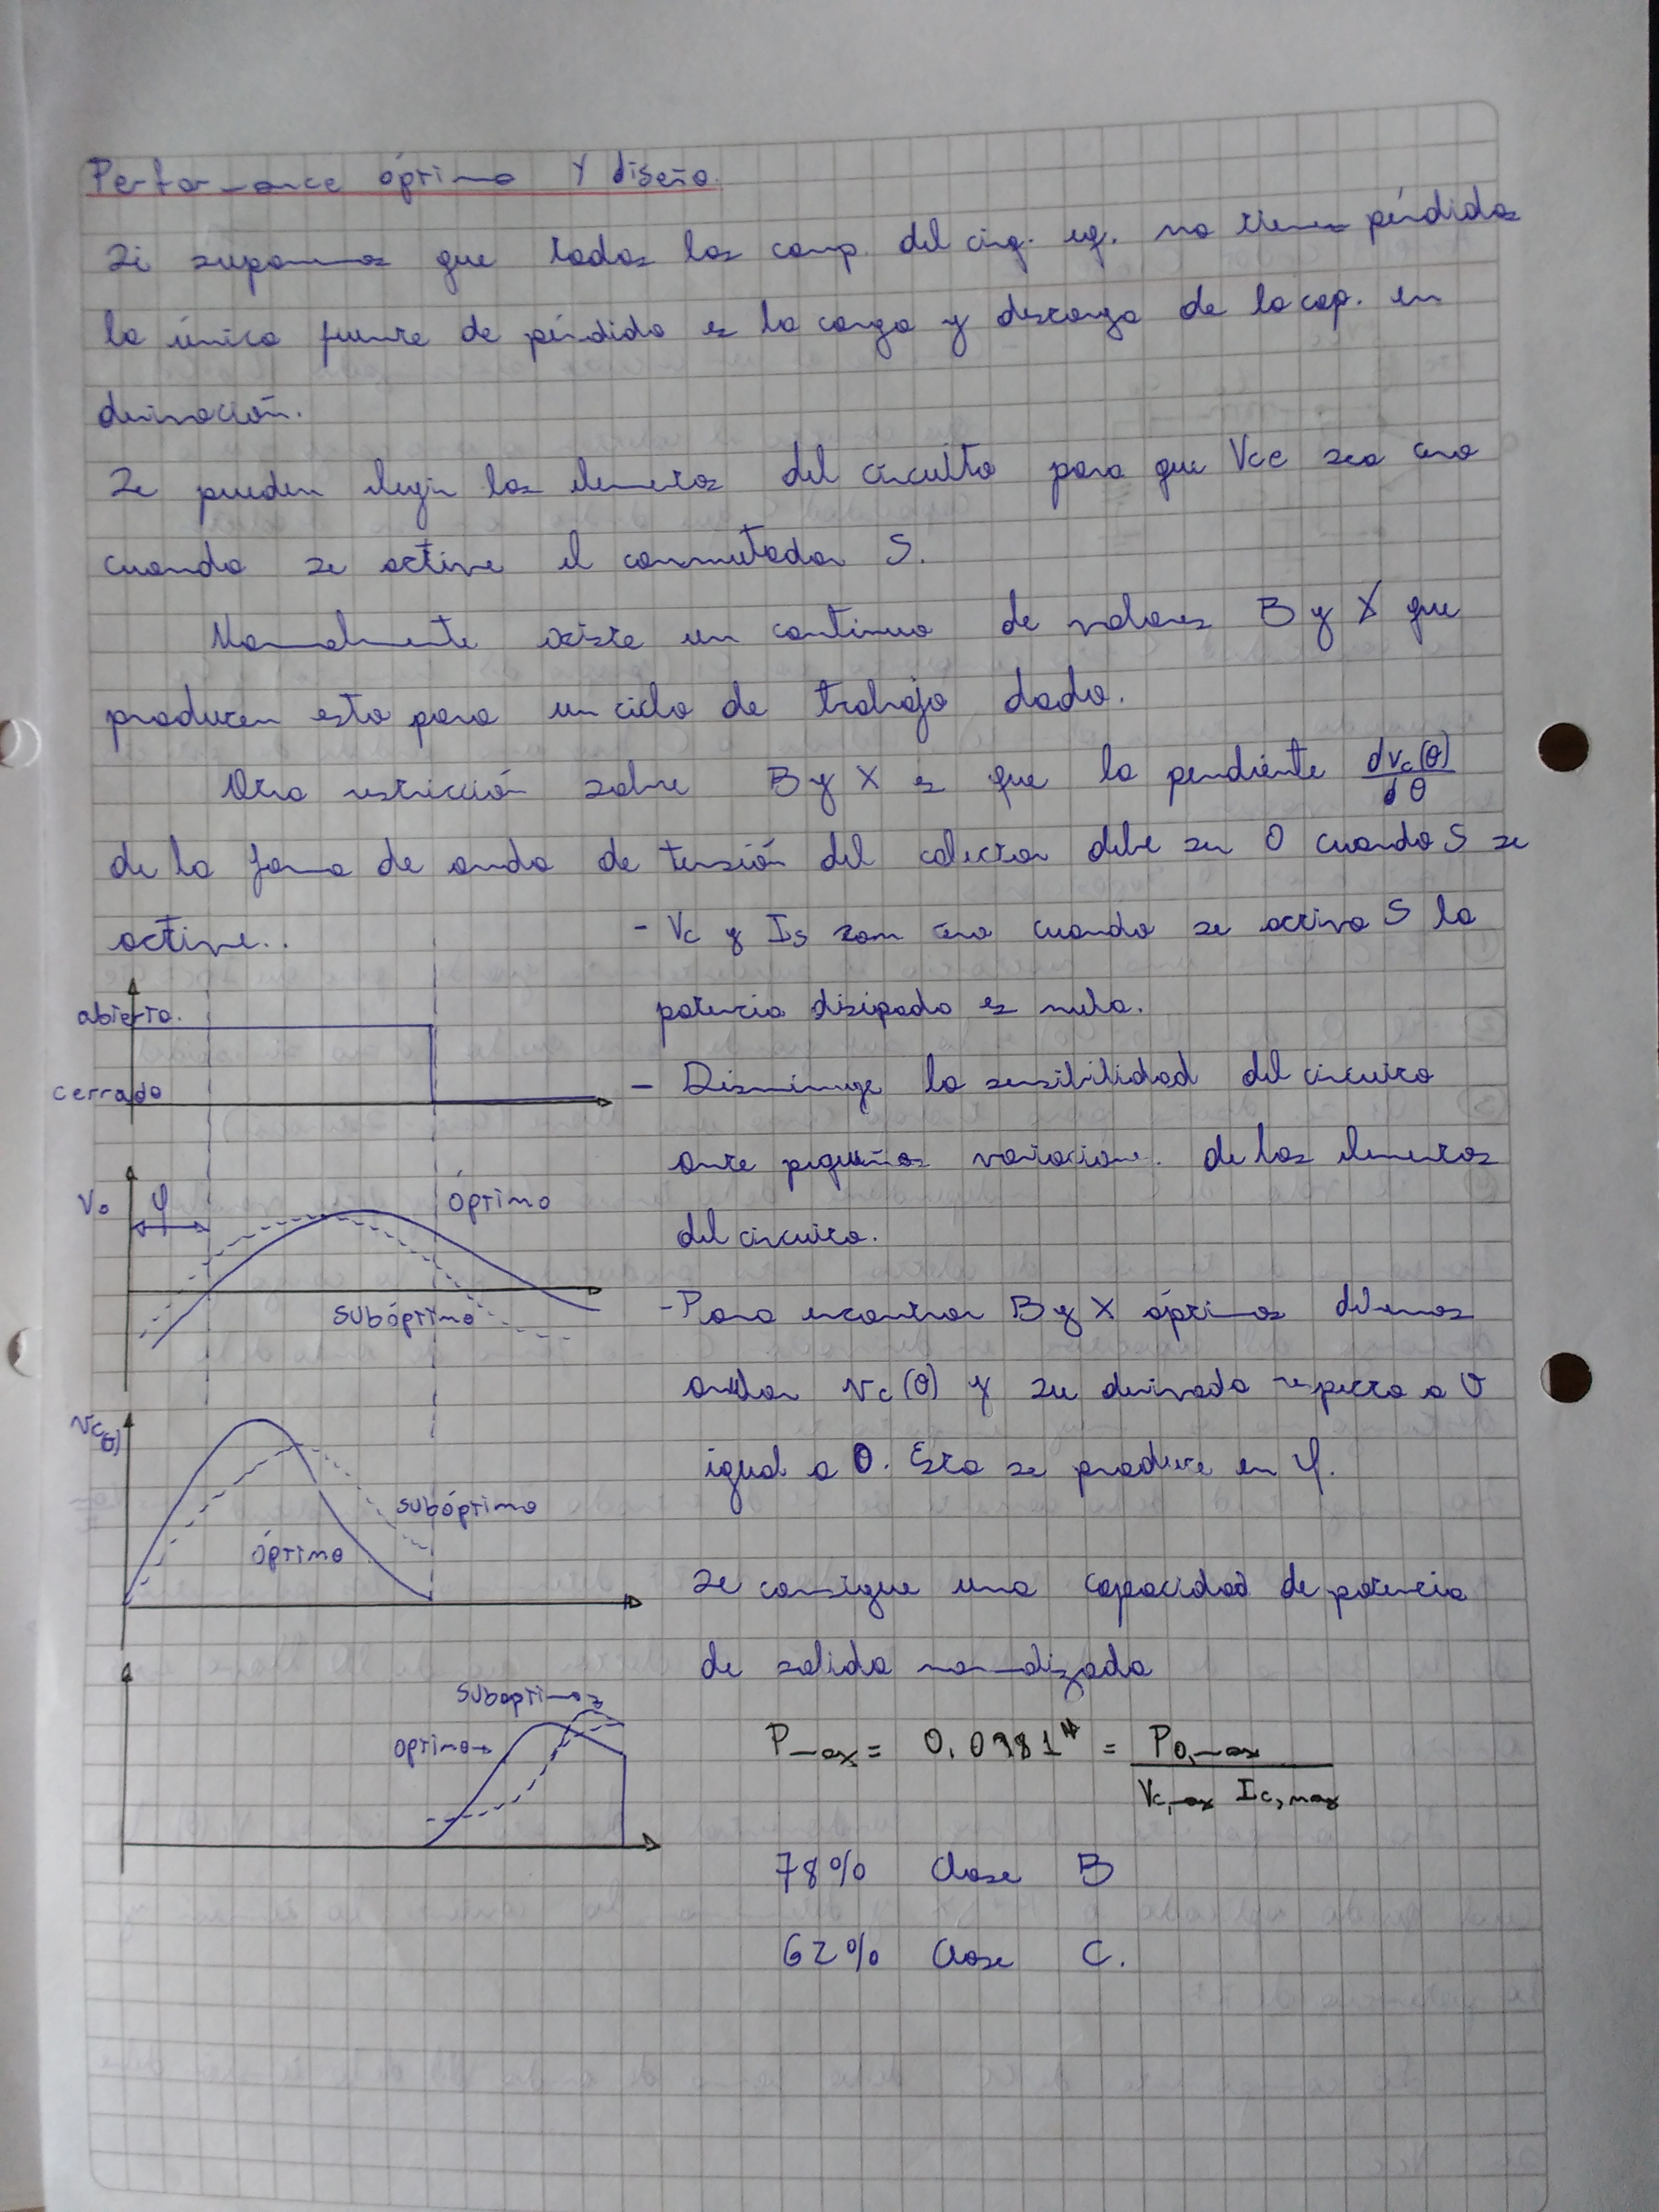 Performance óptima y diseño.
Si suponemos que todos los comp. del circ. eq. no tienen pérdidas
la única fuente de pérdida es la carga y descarga de la cap. en
derivación.
Se pueden elegir los elementos del circuito para que Vce sea cero
cuando se active el conmutador S.
Normalmente existe un continuo de valores B y X que
producen esto para un ciclo de trabajo dado.
Otra restricción sobre B y X es que la pendiente dvc(θ)/dθ
de la forma de onda de tensión del colector debe ser 0 cuando S se
active..
- Vc y Is son cero cuando se activa S la
potencia disipada es nula.
- Disminuye la sensibilidad del circuito
ante pequeñas variacione. de los elementos
del circuito.
- Para encontrar B y X óptimos debemos
anular vc(θ) y su derivada respecto a θ
igual a 0. Esto se produce en φ.
Se consigue una capacidad de potencia
de salida normalizada
Pmax = 0.0981 = Po,max / Vc,max Ic,max
78% Clase B
62% Clase C.
abierto.
cerrado
Vo φ
óptimo
subóptimo
vc(θ)
subóptimo
óptimo
suboptimo
optimo→